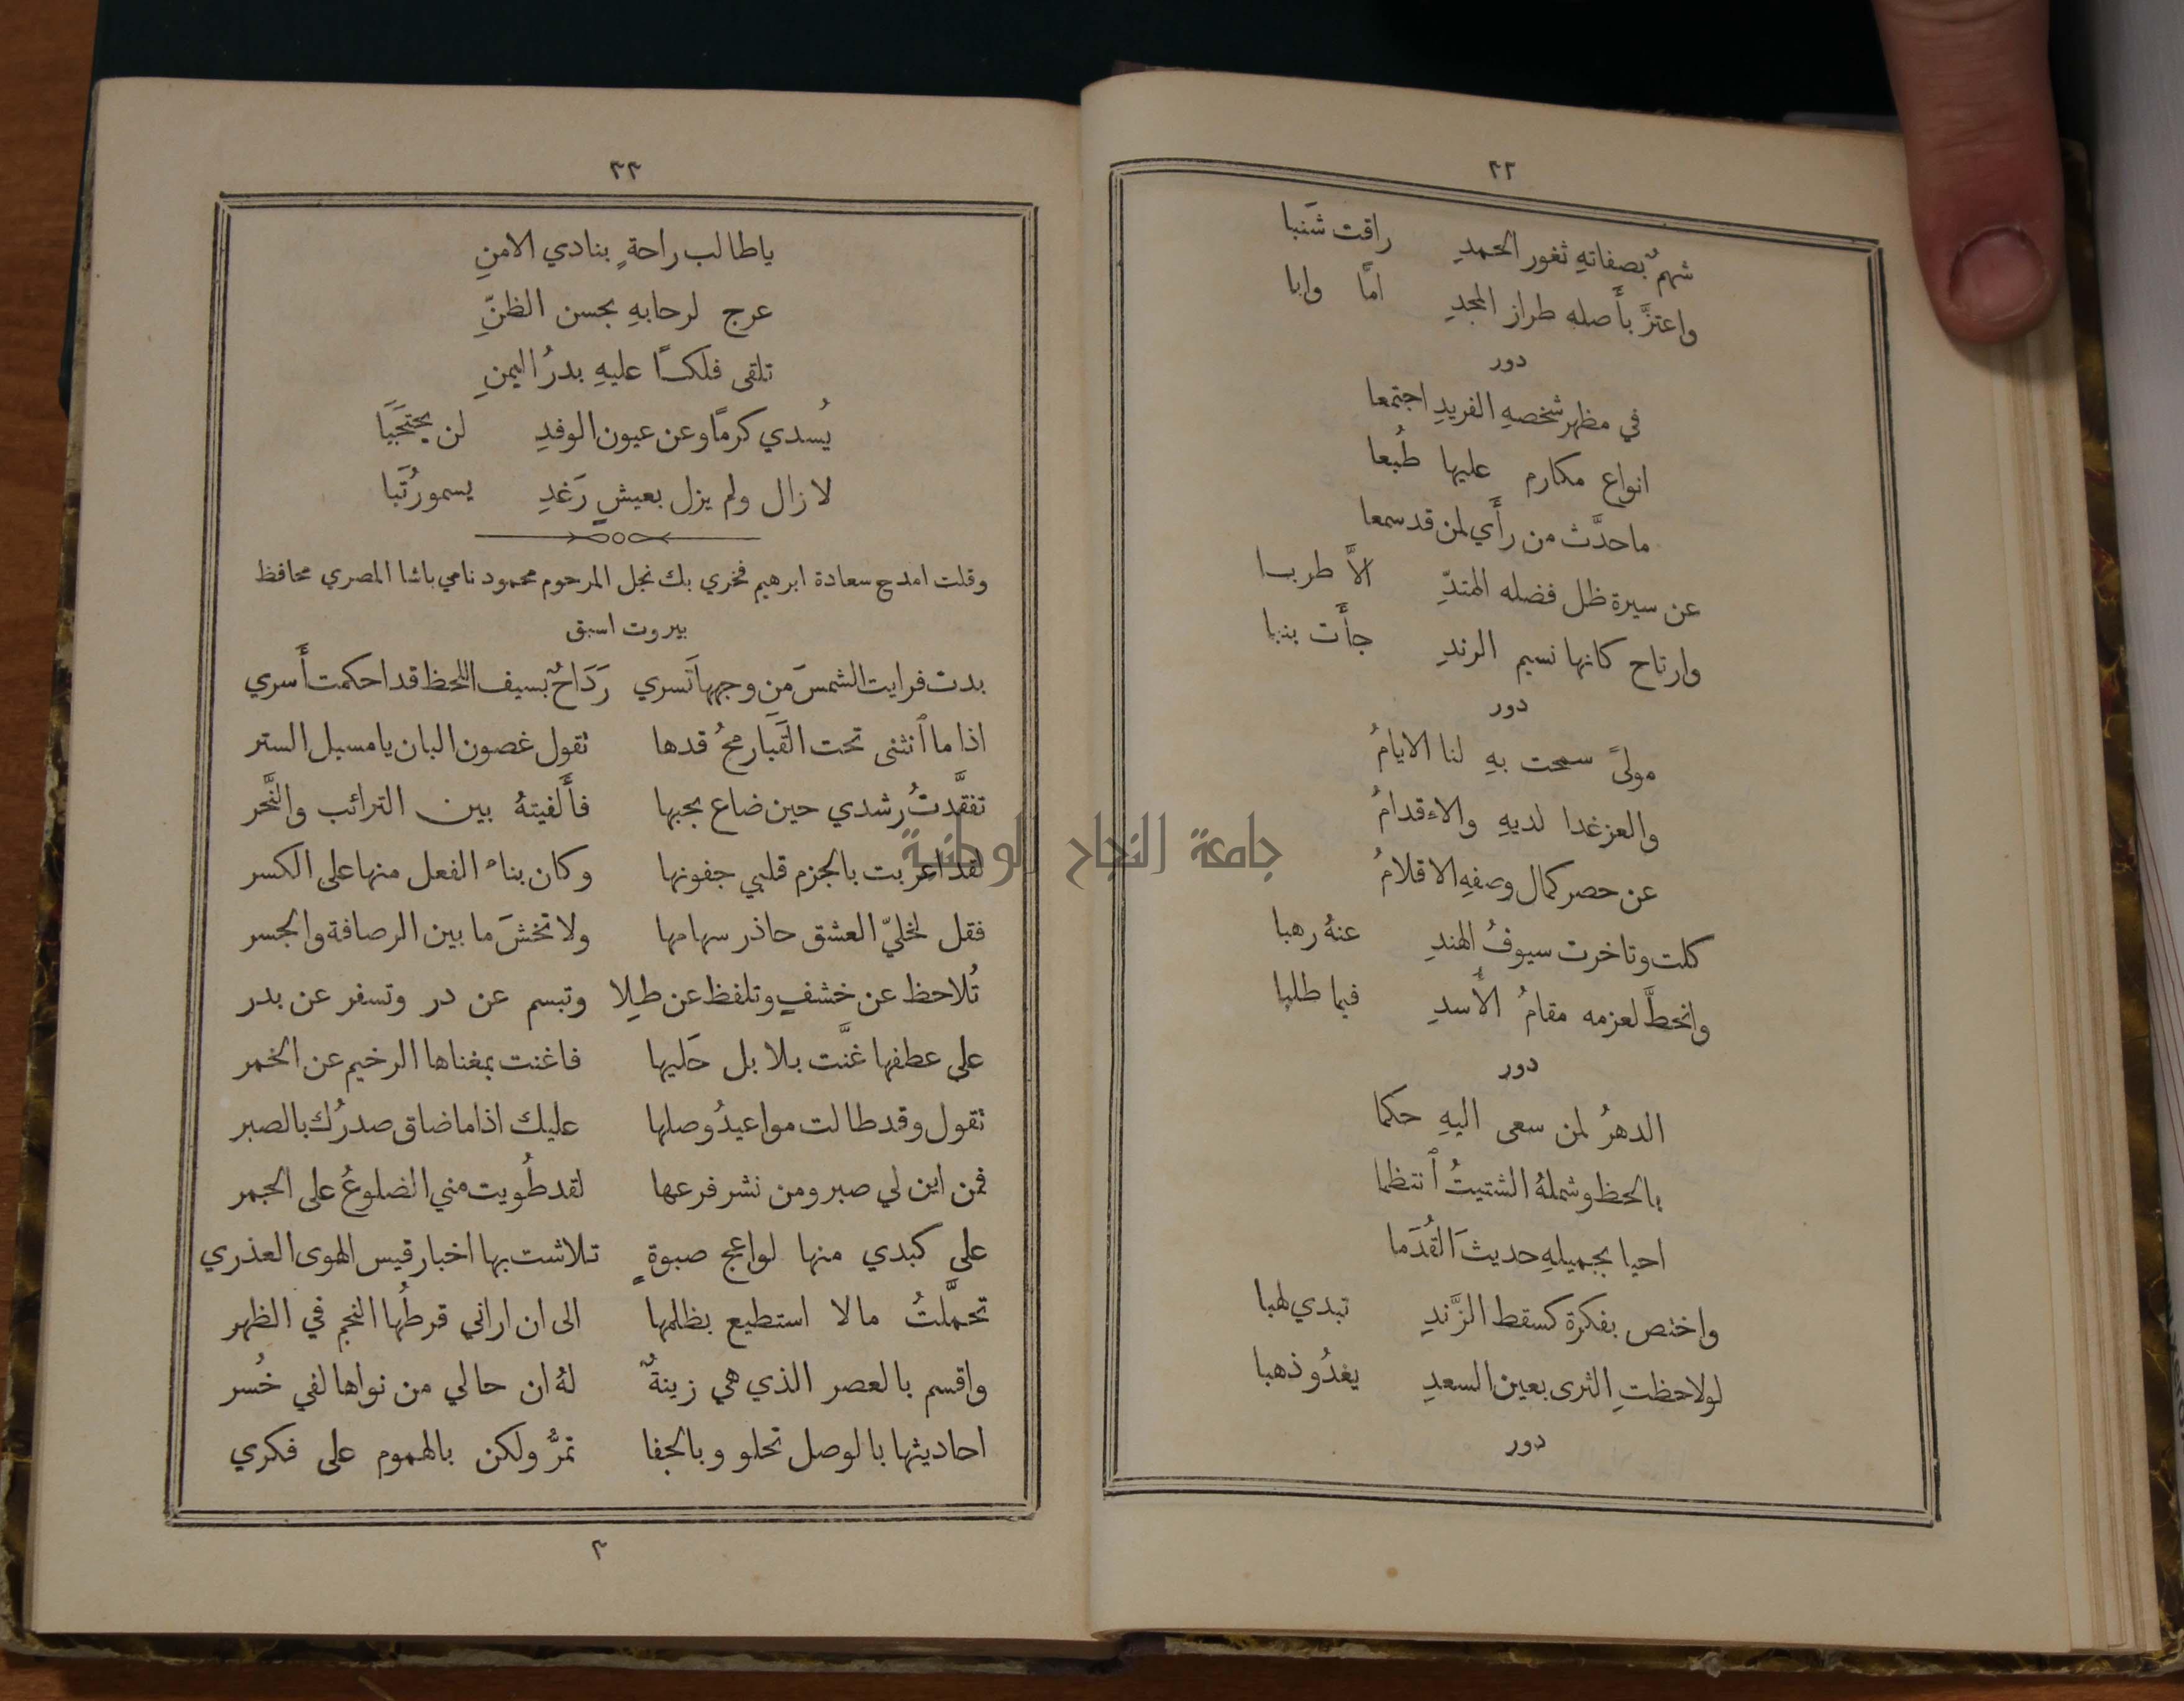 ٣٢
شهمٌ بصفاتهِ ثغور الحمدِ راقت شَنبا
واعتزَّ بأَصله طراز المجدِ امًّا وابا
دور
في مظهر شخصهِ الفريدِ اجتمعا
انواع مكارم عليها طُبعا
ما حدَّث من رأَي لمن قد سمعا
عن سيرة ظل فضله الممتدِّ الاَّ طربا
وارتاح كانها نسيم الرندِ جأَت بنبا
دور
مولىً سمحت بهِ لنا الايامُ
والعز غدا لديهِ والاءقدامُ
عن حصر كمال وصفهِ الاقلامُ
كلت وتاخرت سيوفُ الهندِ عنهُ رهبا
وانحطَّ لعزمه مقامُ الأُسدِ فيما طلبا
دور
الدهرُ لمن سعى اليهِ حكما
بالحظ وشملهُ الشتيتُ ٱنتظما
احيا بجميلهِ حديثَ القُدَما
واختص بفكرة كسقط الزَّندِ تبدي لهبا
لولاحظتِ الثرى بعين السعدِ يغدُو ذهبا
دور
٣٣
ياطالب راحةٍ بنادي الامنِ
عرج لرحابهِ بحسن الظنِّ
تلقى فلكًا عليهِ بدرُ اليمنِ
يُسدي كرمًا وعن عيون الوفدِ لن يحتَجَبا
لا زال ولم يزل بعيشٍ رَغدِ يسمو رُتَبا
وقلت امدح سعادة ابرهيم فخري بك نجل المرحوم محمود نامي باشا المصري محافظ
بيروت اسبق
بدت فرايت الشمسَ من وجهها تَسري رَدَاحٌ بسيف اللحظ قد احكمت أَسري
اذا ما ٱنثنى تحت القَبَا رمحُ قدها تقول غصون البان يا مسبل الستر
تفقَّدتُ رشدي حين ضاع بحبها فأَلفيتهُ بين الترائب والنَّحر
لقد اعربت بالجزم قلبي جفونها وكان بناء الفعل منها على الكسر
فقل لخليّ العشق حاذر سهامها ولا تخشَ ما بين الرصافة والجسر
تُلاحظ عن خشفٍ وتلفظ عن طِلا وتبسم عن در وتسفر عن بدر
على عطفها غنَّت بلابل حَليها فاغنت بمغناها الرخيم عن الخمر
تقول وقد طالت مواعيدُ وصلها عليك اذا ما ضاق صدرُك بالصبر
فمن اين لي صبر ومن نشر فرعها لقد طُويت مني الضلوعُ على الجمر
على كبدي منها لواعج صبوةٍ تلاشت بها اخبار قيس الهوى العذري
تحمَّلتُ ما لا استطيع بظلمها الى ان اراني قرطُها النجم في الظهر
واقسم بالعصر الذي هي زينةٌ لهُ ان حالي من نواها لفي خُسر
احاديثها بالوصل تحلو وبالجفا تمرُّ ولكن بالهموم على فكري
٣
جامعة النجاح الوطنية